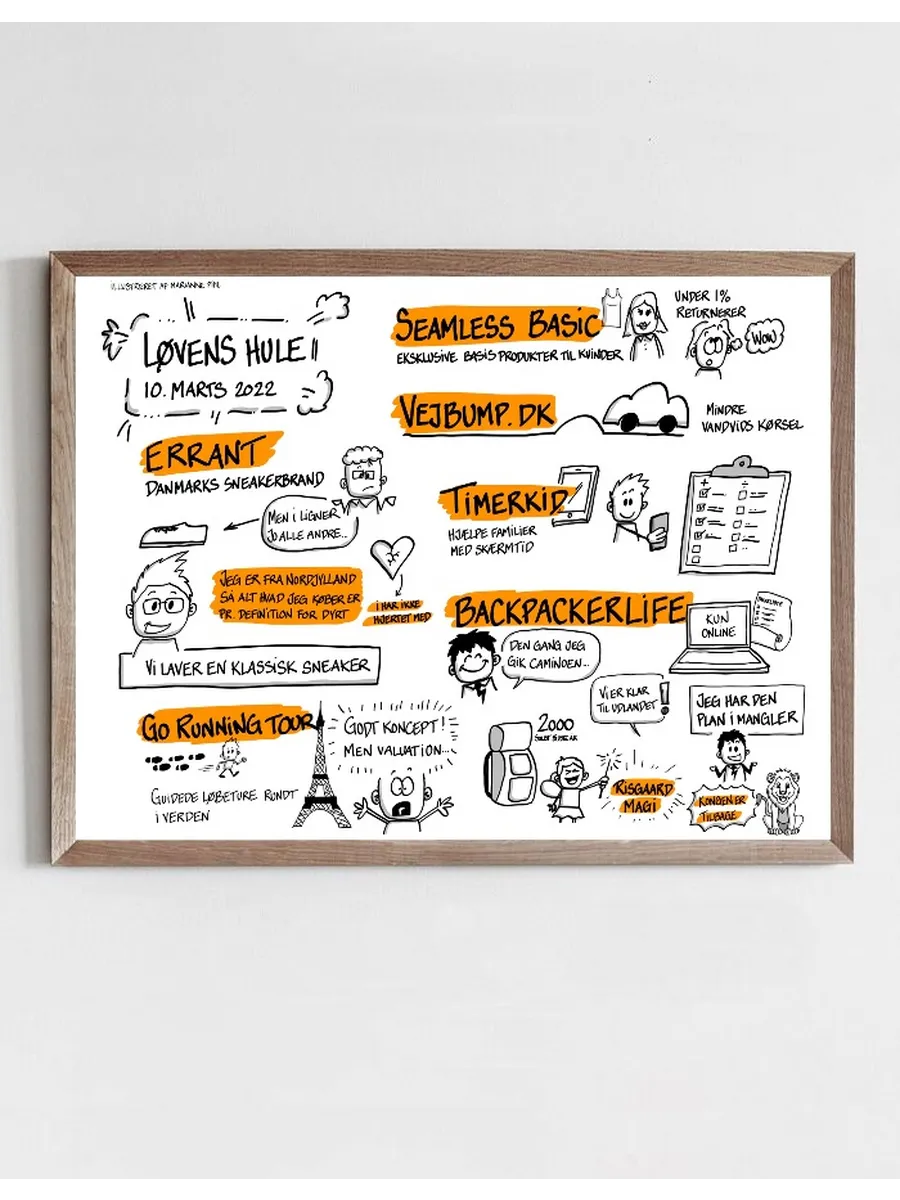 ILLUSTRERET AF MARIANNE
LØVENS HULE
10. MARTS 2022
ERRANT
DANMARKS SNEAKERBRAND
MEN I LIGNER
JO ALLE ANDRE..
JEG ER FRA NORDJYLLAND
SÅ ALT HVAD JEG KØBER ER
PR. DEFINITION FOR DYRT
I HAR IKKE
HJERTET MED
VI LAVER EN KLASSISK SNEAKER
GO RUNNING TOUR
GODT KONCEPT!
MEN VALUATION...
GUIDEDE LØBETURE RUNDT
I VERDEN
SEAMLESS BASIC
EKSKLUSIVE BASIS PRODUKTER TIL KVINDER
UNDER 1%
RETURNERER
WOW
VEJBUMP.DK
MINDRE
VANDVIDS KØRSEL
TIMERKID
HJÆLPE FAMILIER
MED SKÆRMTID
BACKPACKERLIFE
KUN
ONLINE
DEN GANG JEG
GIK CAMINOEN...
VI ER KLAR
TIL UDLANDET!
JEG HAR DEN
PLAN I MANGLER
2000
RISGAARD
MAGI
KONGEN ER
TILBAGE